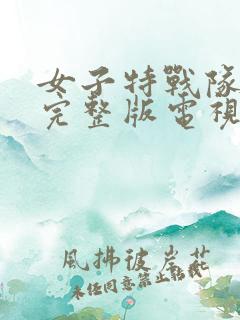 女子特戰隊
完整版電視
風拂彼岸花
未經同意禁止轉載